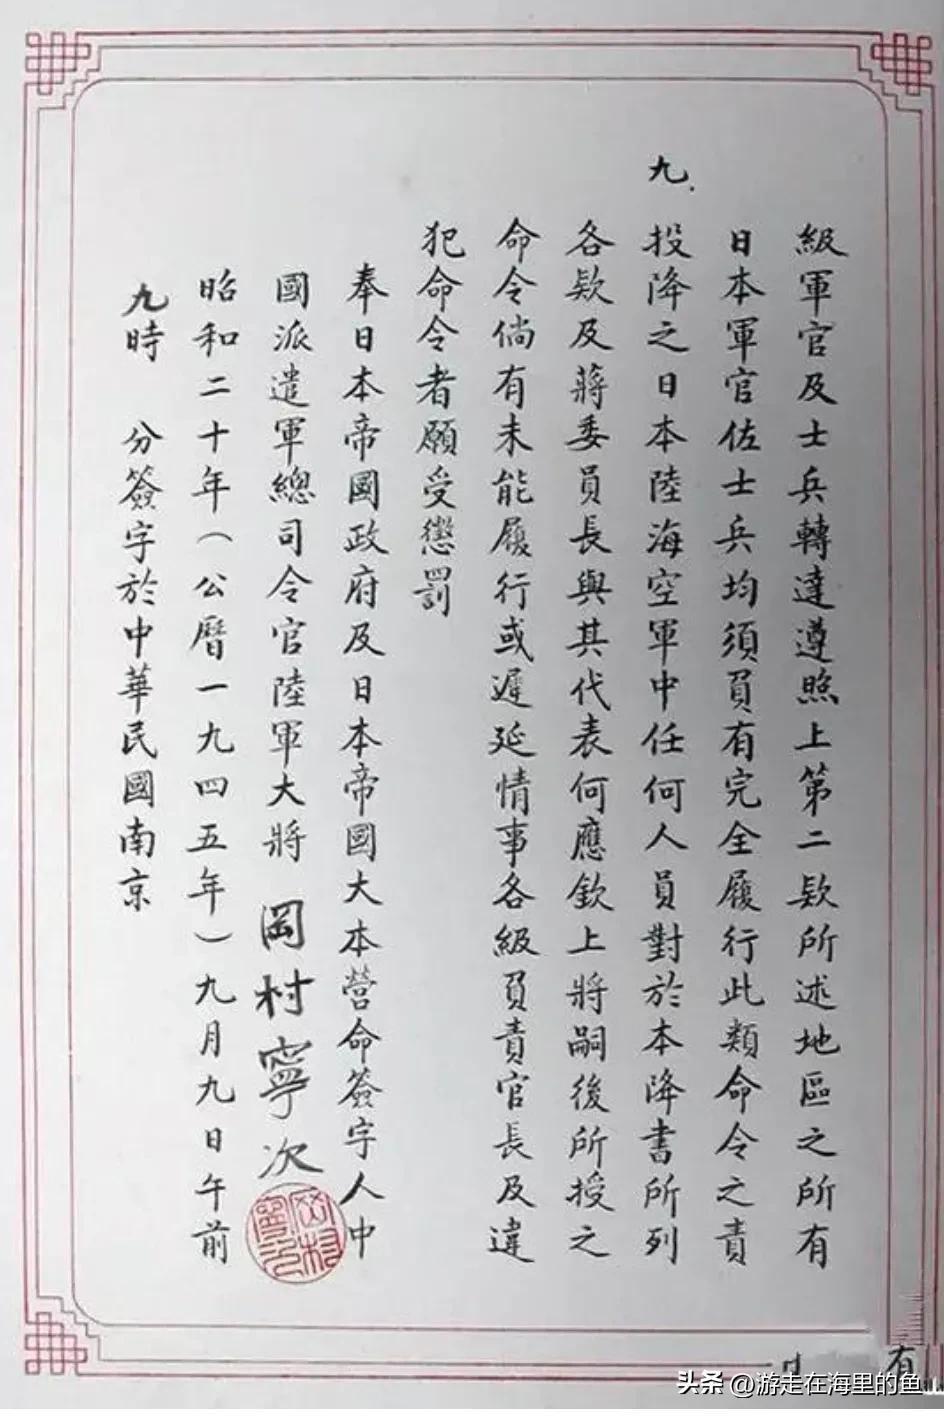 級軍官及士兵轉達遵照上第二欵所述地區之所有
日本軍官佐士兵均須負有完全履行此類命令之責
九.
投降之日本陸海空軍中任何人員對於本降書所列
各欵及蔣委員長與其代表何應欽上將嗣後所授之
命令倘有未能履行或遲延情事各級負責官長及違
犯命令者願受懲罰
奉日本帝國政府及日本帝國大本營命簽字人中
國派遣軍總司令官陸軍大將 岡村寧次
岡村寧次
昭和二十年(公曆一九四五年)九月九日午前
九時 分簽字於中華民國南京
有
头条 @游走在海里的鱼